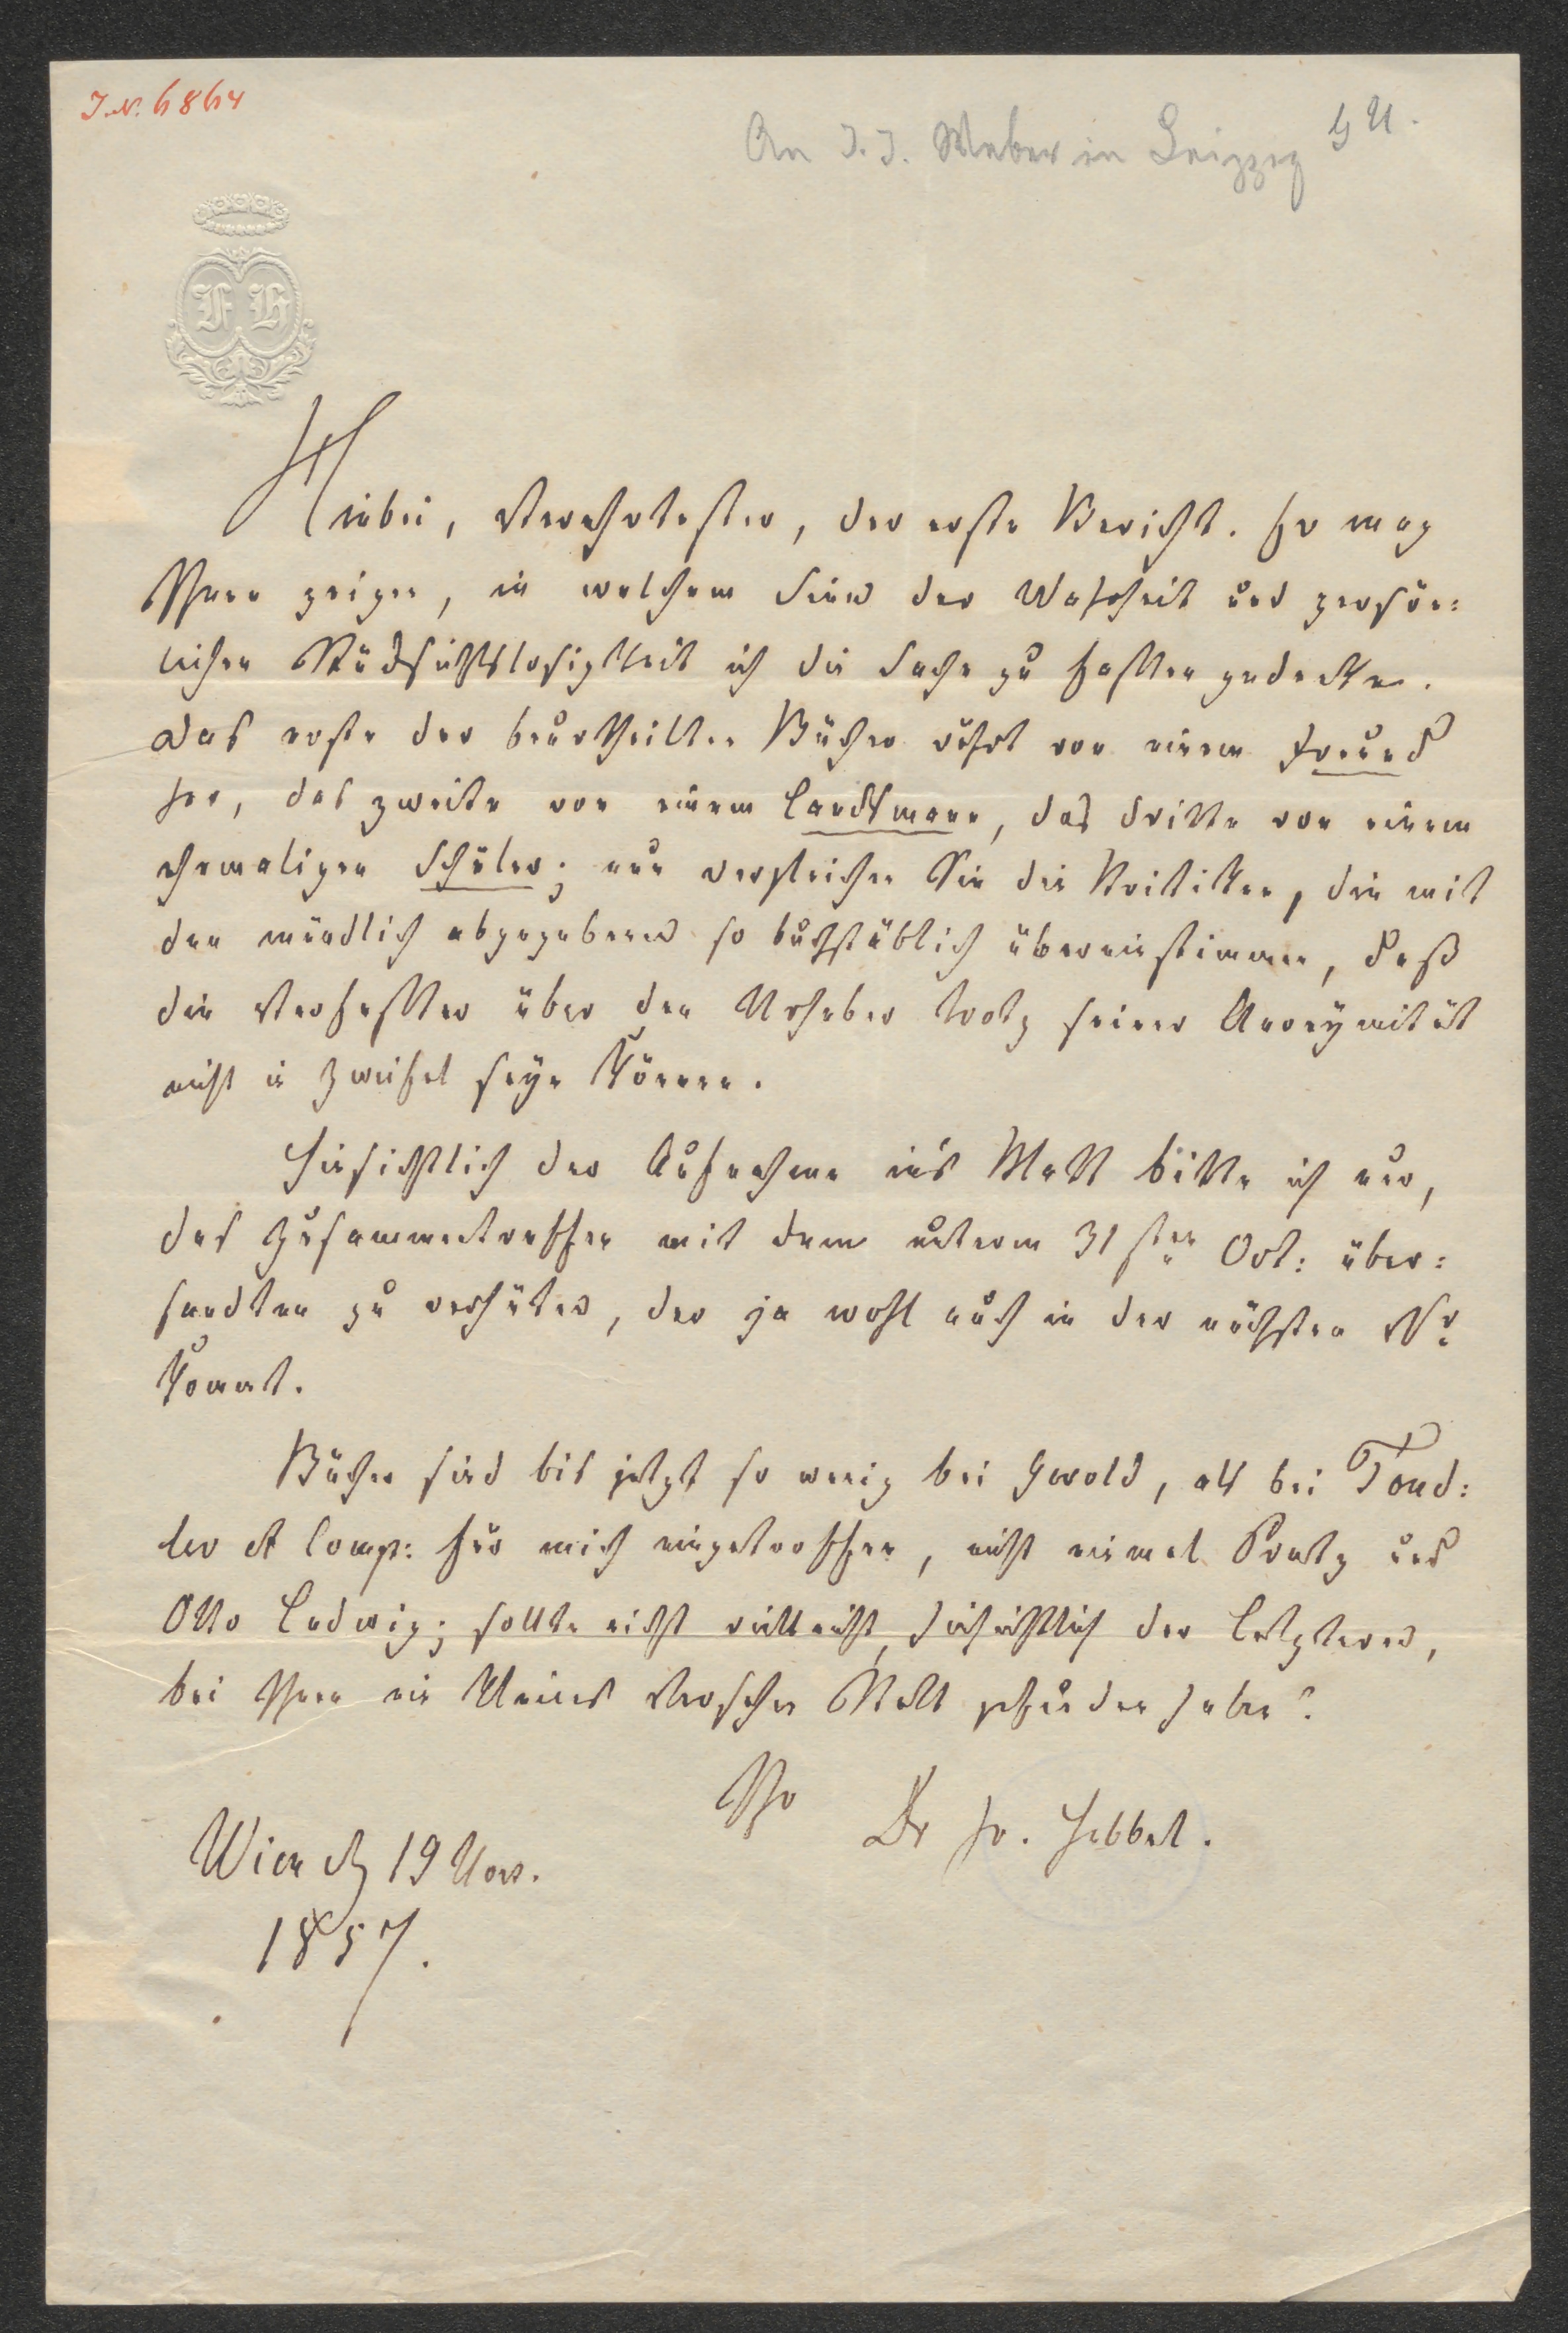 I.N. 6864
An J. J. Weber in Leipzig
FH
Hiebei, Verehrtester, der erste Bericht. Er mag
Ihnen zeigen, in welchem Sinn der Wahrheit und persön=
lichen Rücksichtslosigkeit ich die Sache zu fassen gedenke.
Das erste der beurtheilten Bücher rührt von einem Freund
her, das zweite von einem Landsmann, das dritte von einem
ehemaligen Schüler; nun vergleichen Sie die Kritiken, die mit
den mündlich abgegebenen so buchstäblich übereinstimmen, daß
die Verfasser über den Urheber trotz seiner Anonymität
nicht in Zweifel seyn können.
Hinsichtlich der Aufnahme in's Blatt bitte ich nur,
das Zusammentreffen mit dem unterm 31sten Oct: über=
sandten zu verhüten, der ja wohl auch in der nächsten Nr
kommt.
Bücher sind bis jetzt so wenig bei Gerold, als bei Tend=
ler et Comp: für mich eingetroffen, nicht einmal Prutz und
Otto Ludwig; sollte nicht vielleicht, hinsichtlich der Letzteren,
bei Ihnen ein kleines Versehen Statt gefunden haben?
Ihr
Dr Fr. Hebbel.
Wien d 19 Nov.
1857.